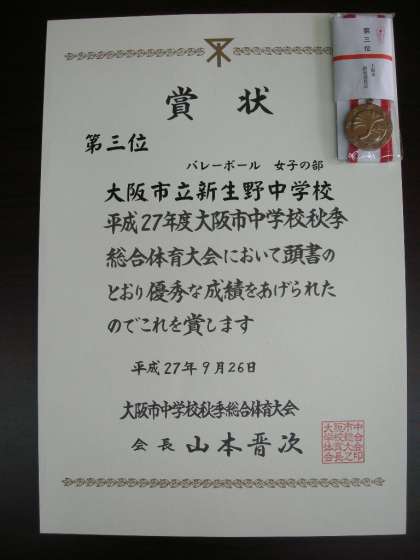 賞状
第三位
第三位
バレーボール 女子の部
大阪市立新生野中学校
平成27年度大阪市中学校秋季
総合体育大会において頭書の
とおり優秀な成績をあげられた
のでこれを賞します
平成27年9月26日
大阪市中学校秋季総合体育大会
会長 山本晋次